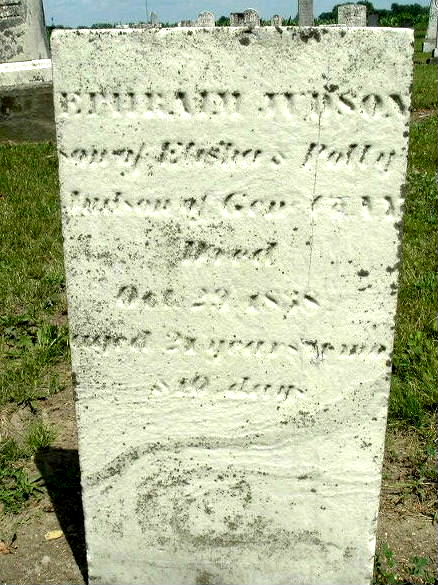 EPHRAIM JUDSON
son of Elisha & Polly
Judson of
Died
Oct. 29, 1838
aged 21 years
& 19 days